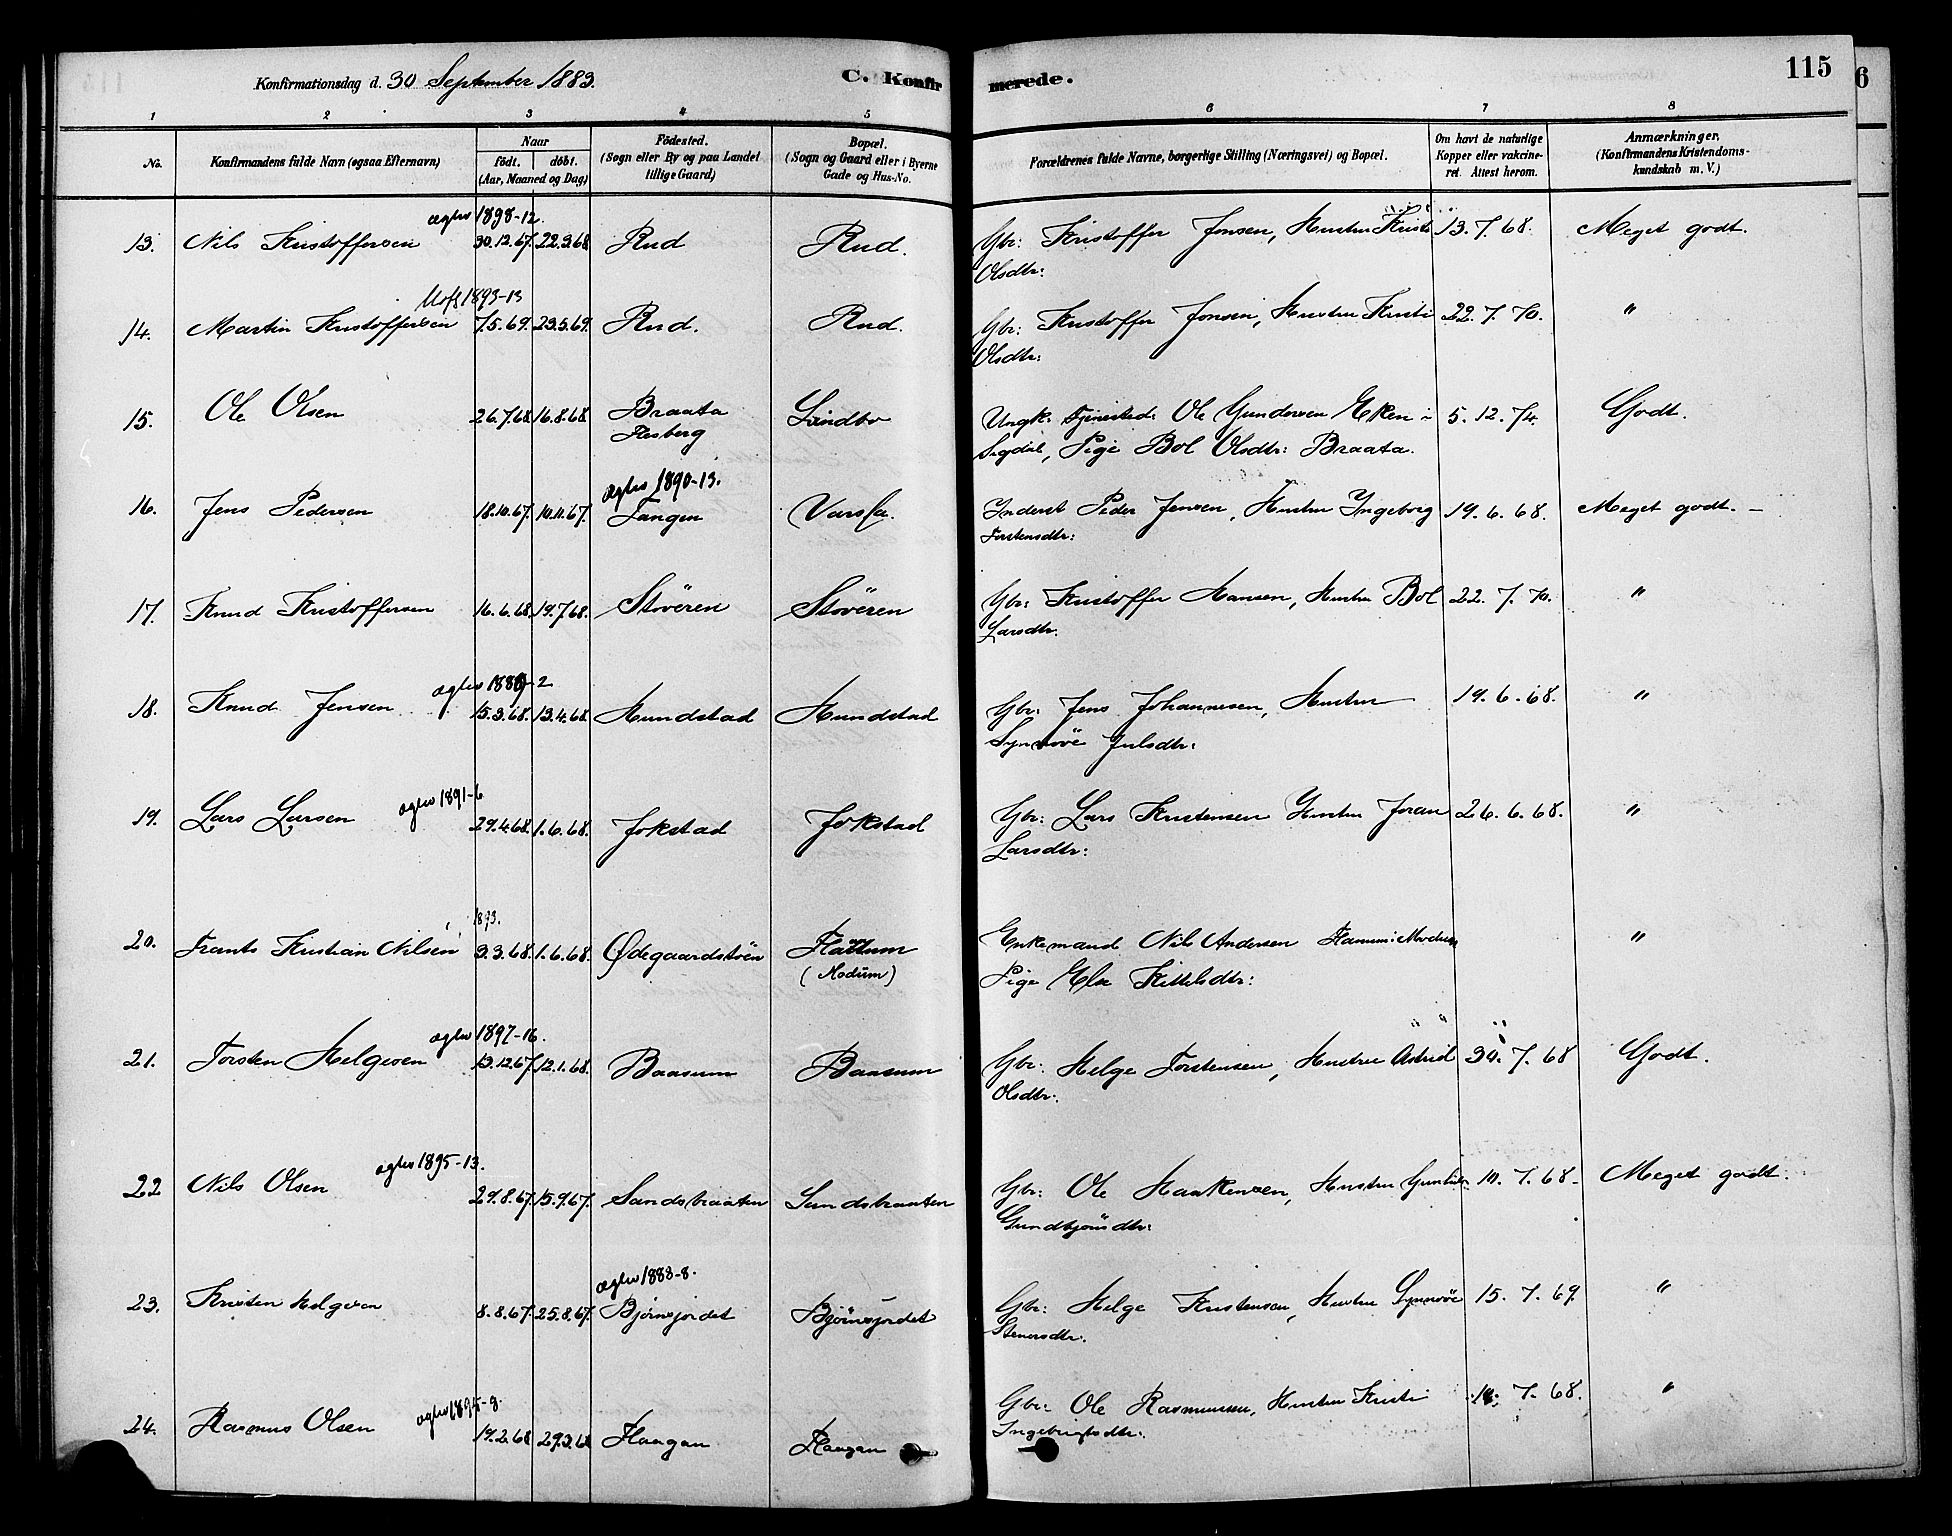 Konfirmationsdag d. 30 September 1883. C. Konfirmerede. 115
6
1 2 3 4 5 6 7 8
No. Konfirmandens fulde Navn (ogsaa Efternavn) Naar født. døbt. (Aar, Maaned og Dag) Fødested. (Sogn eller By og paa Landet tillige Gaard) Bopæl. (Sogn og Gaard eller i Byerne Gade og Hus-No. Forældrenes fulde Navne, borgerlige Stilling (Næringsvei) og Bopæl. Om havt de naturlige Kopper eller vakcineret. Attest herom. Anmærkninger. (Konfirmandens Kristendomskundskab m. V.)
ægtev 1898-12.
13. Nils Kristoffersen 30.12.67. 22.3.68 Rud Rud. Gbr: Kristoffer Jonsen, Hustru Kristi 13.7.68. Meget godt.
Olsdtr:
1893-13
14. Martin Kristoffersen 7.5.69. 23.5.69. Rud. Rud. Gbr: Kristoffer Jonsen, Hustru Kristi 22.7.70. "
Olsdtr:
15. Ole Olsen 26.7.68 16.8.68 Braata Lindbo Ungk. Tjenested: Ole Gundersen Eken i 5.12.74. Godt.
Flesberg Sigdal, Pige Bol Olsdtr: Braata.
ægtev 1890-13.
16. Jens Pedersen 18.10.67. 10.11.67. Tangen Inderst Peder Jensen, Hustru Ingeborg 19.6.68. Meget godt. -
Torstensdtr:
17. Knud Kristoffersen 16.6.68. 19.7.68. Støveren Støveren Gbr: Kristoffer Hansen, Hustru Bol 22.7.70. "
Larsdtr.
ægtev 1889-2
18. Knud Jensen 15.3.68. 13.4.68. Hundstad Hundstad Gbr: Jens Johannesen, Hustru 19.6.68. "
Synnøve Julsdtr:
ægtev 1891-6
19. Lars Larsen 29.4.68. 1.6.68. Jokstad Jokstad Gbr: Lars Kristensen Hustru Joran 26.6.68. "
Larsdtr:
1893.
20. Frants Kristian Nilsen 3.3.68. 1.6.68. Ødegaardstøen (Modum) Enkemand Nils Andersen i Modum "
Pige Else Kittelsdtr:
ægtev 1897-16.
21. Torsten Helgesen 13.12.67. 12.1.68. Baasum Baasum Gbr: Helge Torstensen, Hustru Astrid 30.7.68 Godt.
Olsdtr:
ægtev 1895-13.
22 Nils Olsen 29.8.67. 15.9.67. Sandsbraaten Sundsbraaten Gbr: Ole Haakensen, Hustru 10.7.68. Meget godt.
Gundbjønsdtr:
ægtev 1888-8.
23. Kristen Helgesen 8.8.67. 25.8.67. Bjørnsjordet Bjørnsjordet Gbr: Helge Kristensen, Hustru Synnøve 15.7.69. "
Stenersdtr.
24. Rasmus Olsen 19.2.68 29.3.68 Haagan Haagan Gbr: Ole Rasmussen, Hustru Kristi 7.68. "
Ingebrigtsdtr: